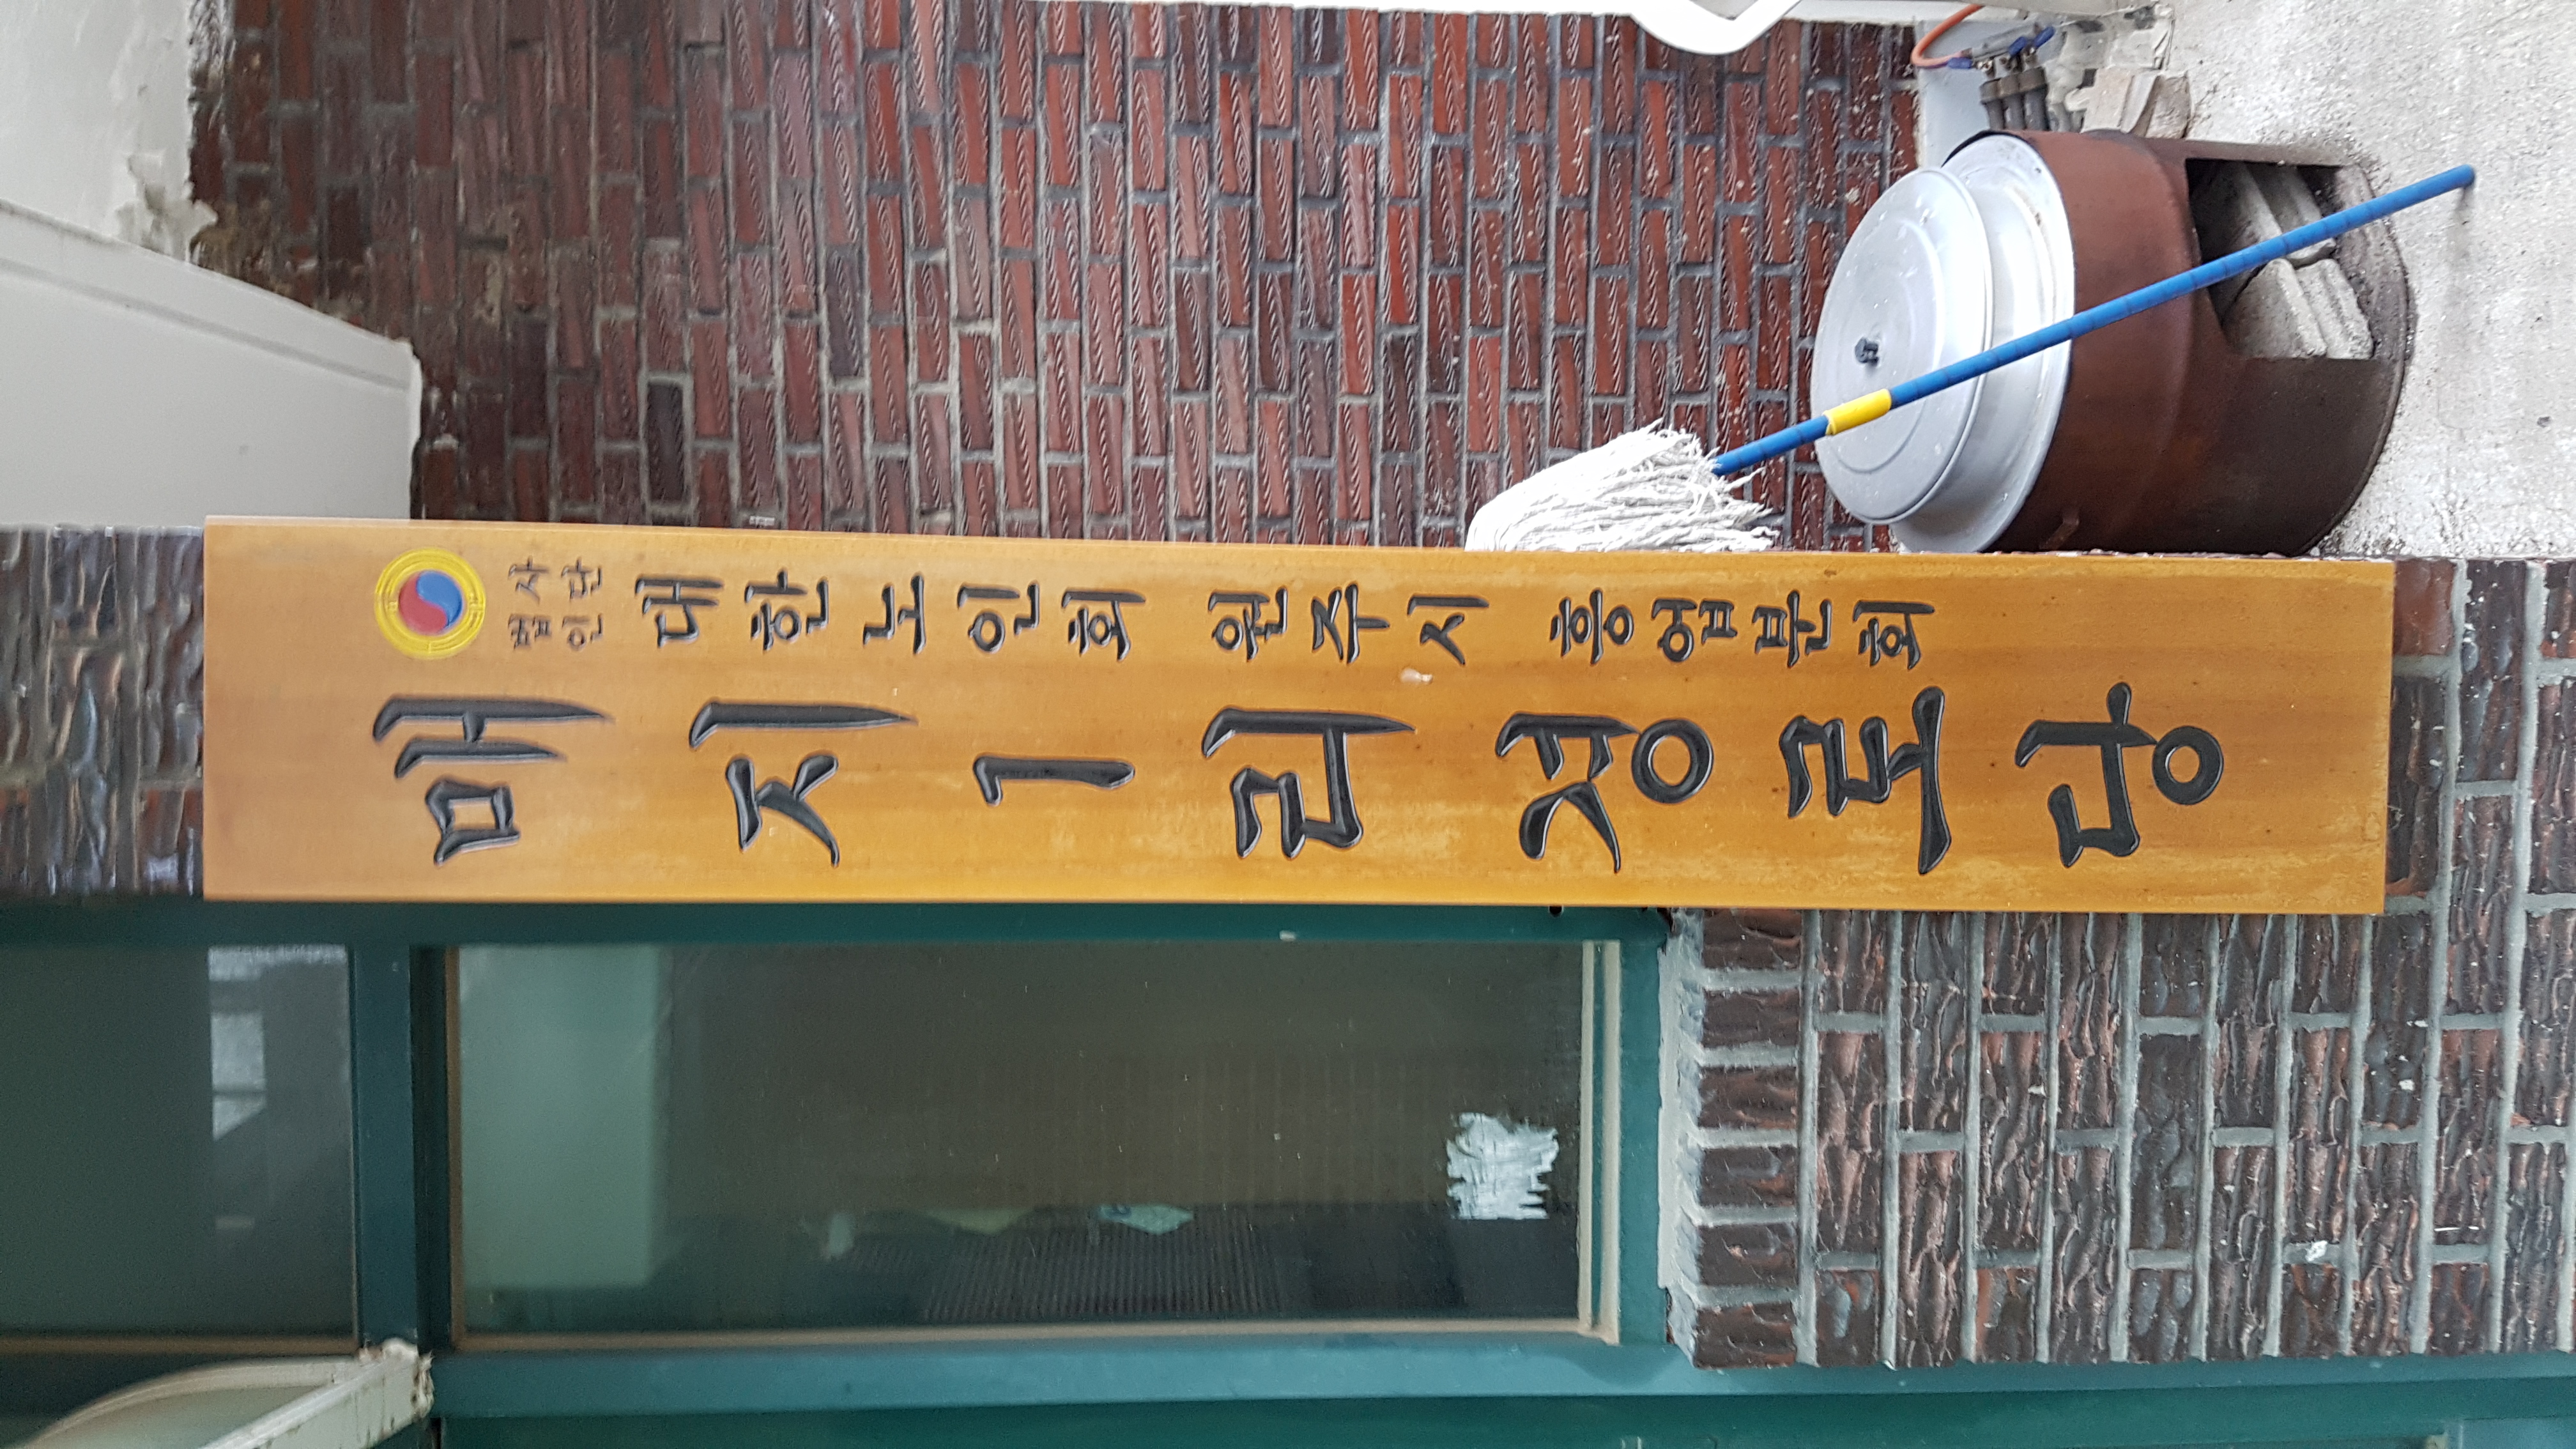 사단
법인
대한노인회 원주시 흥업분회
매지1리경로당